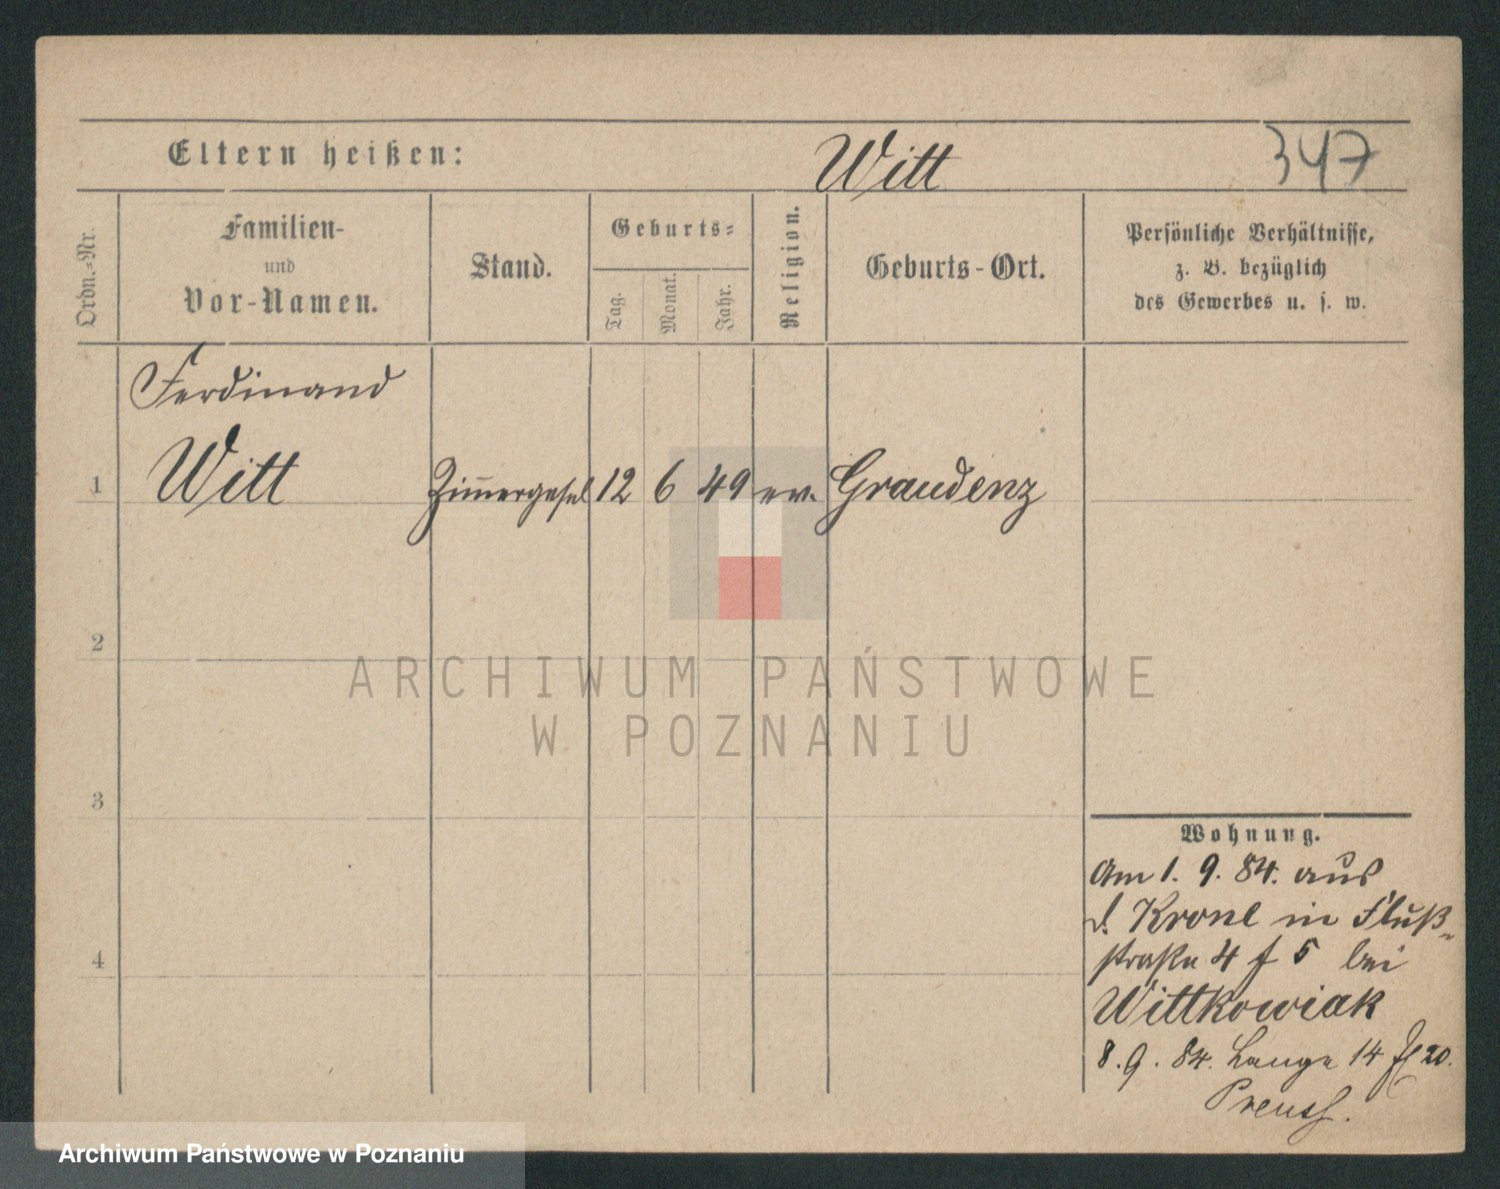 Eltern heißen: Witt 347
Ordn.-Nr.
Familien-
und
Vor-Namen.
Stand.
Geburts-
Tag.
Monat.
Jahr.
Religion.
Geburts-Ort.
Persönliche Verhältnisse,
z. B. bezüglich
des Gewerbes u. s. w.
Ferdinand
1 Witt Zim̄ergesel 12 6 49 ev. Graudenz
2
3
4
ARCHIWUM PAŃSTWOWE
W POZNANIU
Wohnung.
Am 1. 9. 84. aus
d. Krone in Fluß-
straße 4 f 5 bei
Wittkowiak
8. 9. 84. Lange 14 20.
Preuß.
Archiwum Państwowe w Poznaniu